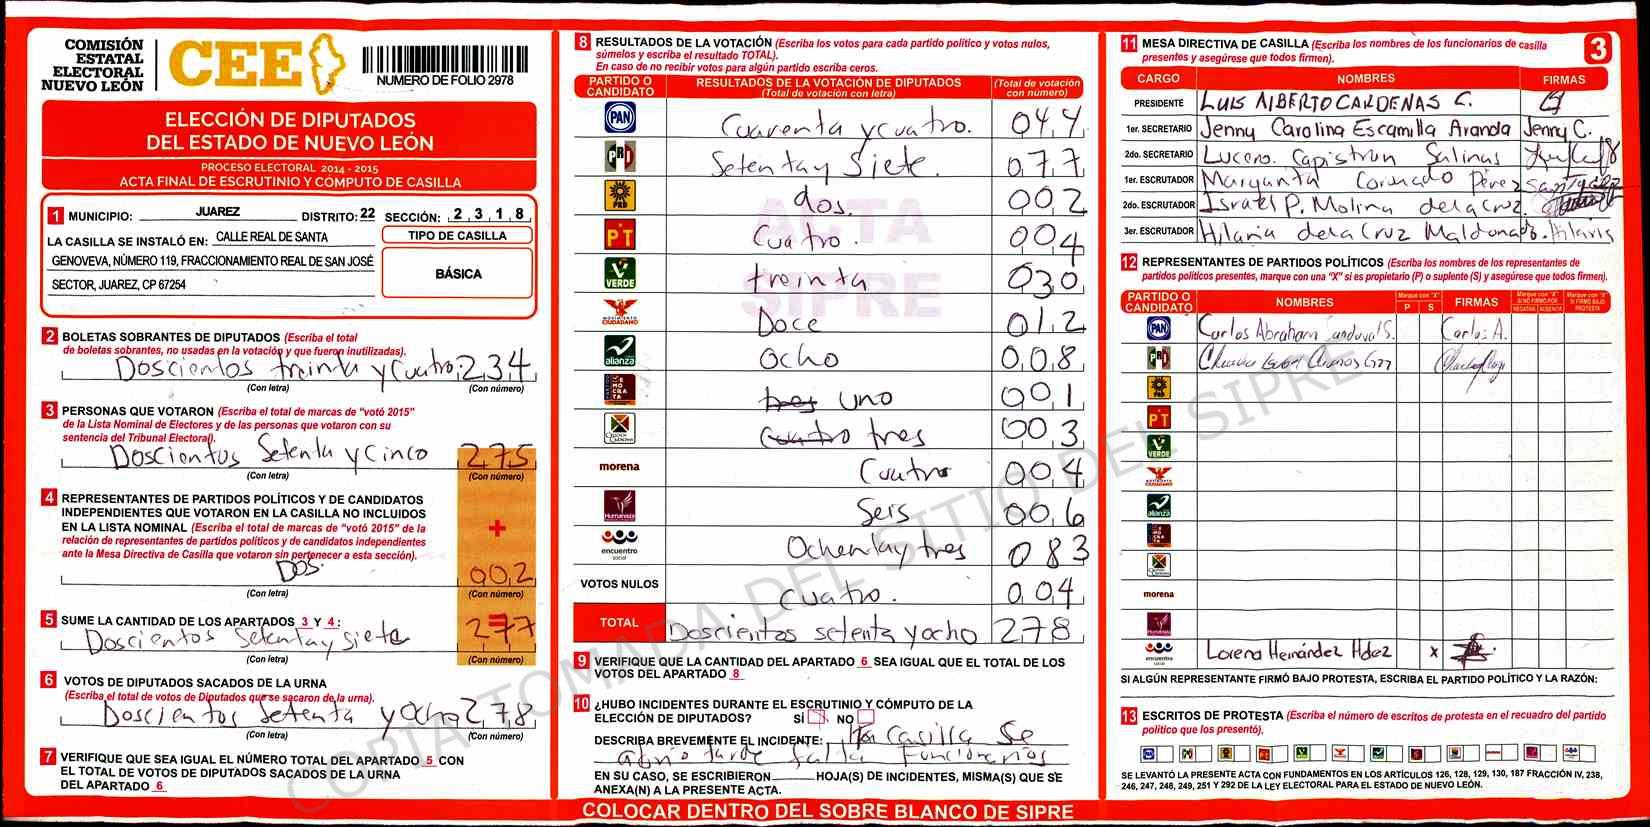 COMISIÓN
ESTATAL
ELECTORAL
NUEVO LEÓN
CEE
NUMERO DE FOLIO 2978
ELECCIÓN DE DIPUTADOS
DEL ESTADO DE NUEVO LEÓN
PROCESO ELECTORAL 2014 - 2015
ACTA FINAL DE ESCRUTINIO Y CÓMPUTO DE CASILLA
1 MUNICIPIO: JUAREZ DISTRITO: 22 SECCIÓN: 2,3,1,8
LA CASILLA SE INSTALÓ EN: CALLE REAL DE SANTA
GENOVEVA, NÚMERO 119, FRACCIONAMIENTO REAL DE SAN JOSÉ
SECTOR, JUAREZ, CP 67254
TIPO DE CASILLA
BÁSICA
2 BOLETAS SOBRANTES DE DIPUTADOS (Escriba el total
de boletas sobrantes, no usadas en la votación y que fueron inutilizadas).
Doscientos treinta y Cuatro 234
(Con letra) (Con número)
3 PERSONAS QUE VOTARON (Escriba el total de marcas de "votó 2015"
de la Lista Nominal de Electores y de las personas que votaron con su
sentencia del Tribunal Electoral).
Doscientos Setenta y Cinco 275
(Con letra) (Con número)
4 REPRESENTANTES DE PARTIDOS POLÍTICOS Y DE CANDIDATOS
INDEPENDIENTES QUE VOTARON EN LA CASILLA NO INCLUIDOS
EN LA LISTA NOMINAL (Escriba el total de marcas de "votó 2015" de la
relación de representantes de partidos políticos y de candidatos independientes
ante la Mesa Directiva de Casilla que votaron sin pertenecer a esta sección).
+
Dos. 002
(Con letra) (Con número)
5 SUME LA CANTIDAD DE LOS APARTADOS 3 Y 4: =
Doscientos Setenta y siete 277
(Con letra) (Con número)
6 VOTOS DE DIPUTADOS SACADOS DE LA URNA
(Escriba el total de votos de Diputados que se sacaron de la urna).
Doscientos Setenta y ocho 278
(Con letra) (Con número)
7 VERIFIQUE QUE SEA IGUAL EL NÚMERO TOTAL DEL APARTADO 5 CON
EL TOTAL DE VOTOS DE DIPUTADOS SACADOS DE LA URNA
DEL APARTADO 6
8 RESULTADOS DE LA VOTACIÓN (Escriba los votos para cada partido político y votos nulos,
súmelos y escriba el resultado TOTAL).
En caso de no recibir votos para algún partido escriba ceros.
PARTIDO O CANDIDATO RESULTADOS DE LA VOTACIÓN DE DIPUTADOS (Total de votación con letra) (Total de votación con número)
PAN Cuarenta y cuatro. 044
PRI Setenta y Siete. 077
PRD dos. 002
PT Cuatro. 004
VERDE treinta 030
MOVIMIENTO CIUDADANO Doce 012
alianza Ocho 008
DEMOCRATA tres uno 001
cuatro tres 003
morena Cuatro 004
Humanista Seis 006
encuentro social Ochenta y tres 083
VOTOS NULOS cuatro. 004
TOTAL Doscientos setenta y ocho 278
ACTA
SIPRE
9 VERIFIQUE QUE LA CANTIDAD DEL APARTADO 6 SEA IGUAL QUE EL TOTAL DE LOS
VOTOS DEL APARTADO 8
10 ¿HUBO INCIDENTES DURANTE EL ESCRUTINIO Y CÓMPUTO DE LA
ELECCIÓN DE DIPUTADOS? SÍ NO
DESCRIBA BREVEMENTE EL INCIDENTE: la Casilla Se
abrio tarde falta funcionarios
EN SU CASO, SE ESCRIBIERON HOJA(S) DE INCIDENTES, MISMA(S) QUE SE
ANEXA(N) A LA PRESENTE ACTA.
COLOCAR DENTRO DEL SOBRE BLANCO DE SIPRE
11 MESA DIRECTIVA DE CASILLA (Escriba los nombres de los funcionarios de casilla
presentes y asegúrese que todos firmen).
3
CARGO NOMBRES FIRMAS
PRESIDENTE LUIS ALBERTO CARDENAS C.
1er. SECRETARIO Jenny Carolina Escamilla Aranda Jenny C.
2do. SECRETARIO Lucero. Capistran Salinas
1er. ESCRUTADOR Margarita Coronado Pérez
2do. ESCRUTADOR Israel P. Molina de la Cruz.
3er. ESCRUTADOR Hilaria de la Cruz Maldonado. Hilaria
12 REPRESENTANTES DE PARTIDOS POLÍTICOS (Escriba los nombres de los representantes de
partidos políticos presentes, marque con una "X" si es propietario (P) o suplente (S) y asegúrese que todos firmen).
PARTIDO O CANDIDATO NOMBRES Marque con "X" P S FIRMAS Marque con "X" SI NO FIRMÓ POR NEGATIVA AUSENCIA Marque con "X" SI FIRMÓ BAJO PROTESTA
PAN Carlos Abraham Sandoval S. Carlos A.
PRI
PRD
PT
VERDE
MOVIMIENTO CIUDADANO
alianza
DEMOCRATA
morena
Humanista
encuentro social Lorena Hernández Hdez x
SI ALGÚN REPRESENTANTE FIRMÓ BAJO PROTESTA, ESCRIBA EL PARTIDO POLÍTICO Y LA RAZÓN:
13 ESCRITOS DE PROTESTA (Escriba el número de escritos de protesta en el recuadro del partido
político que los presentó).
SE LEVANTÓ LA PRESENTE ACTA CON FUNDAMENTOS EN LOS ARTÍCULOS 126, 128, 129, 130, 187 FRACCIÓN IV, 238,
246, 247, 248, 249, 251 Y 292 DE LA LEY ELECTORAL PARA EL ESTADO DE NUEVO LEÓN.
COPIA TOMADA DEL SITIO DEL SIPRE